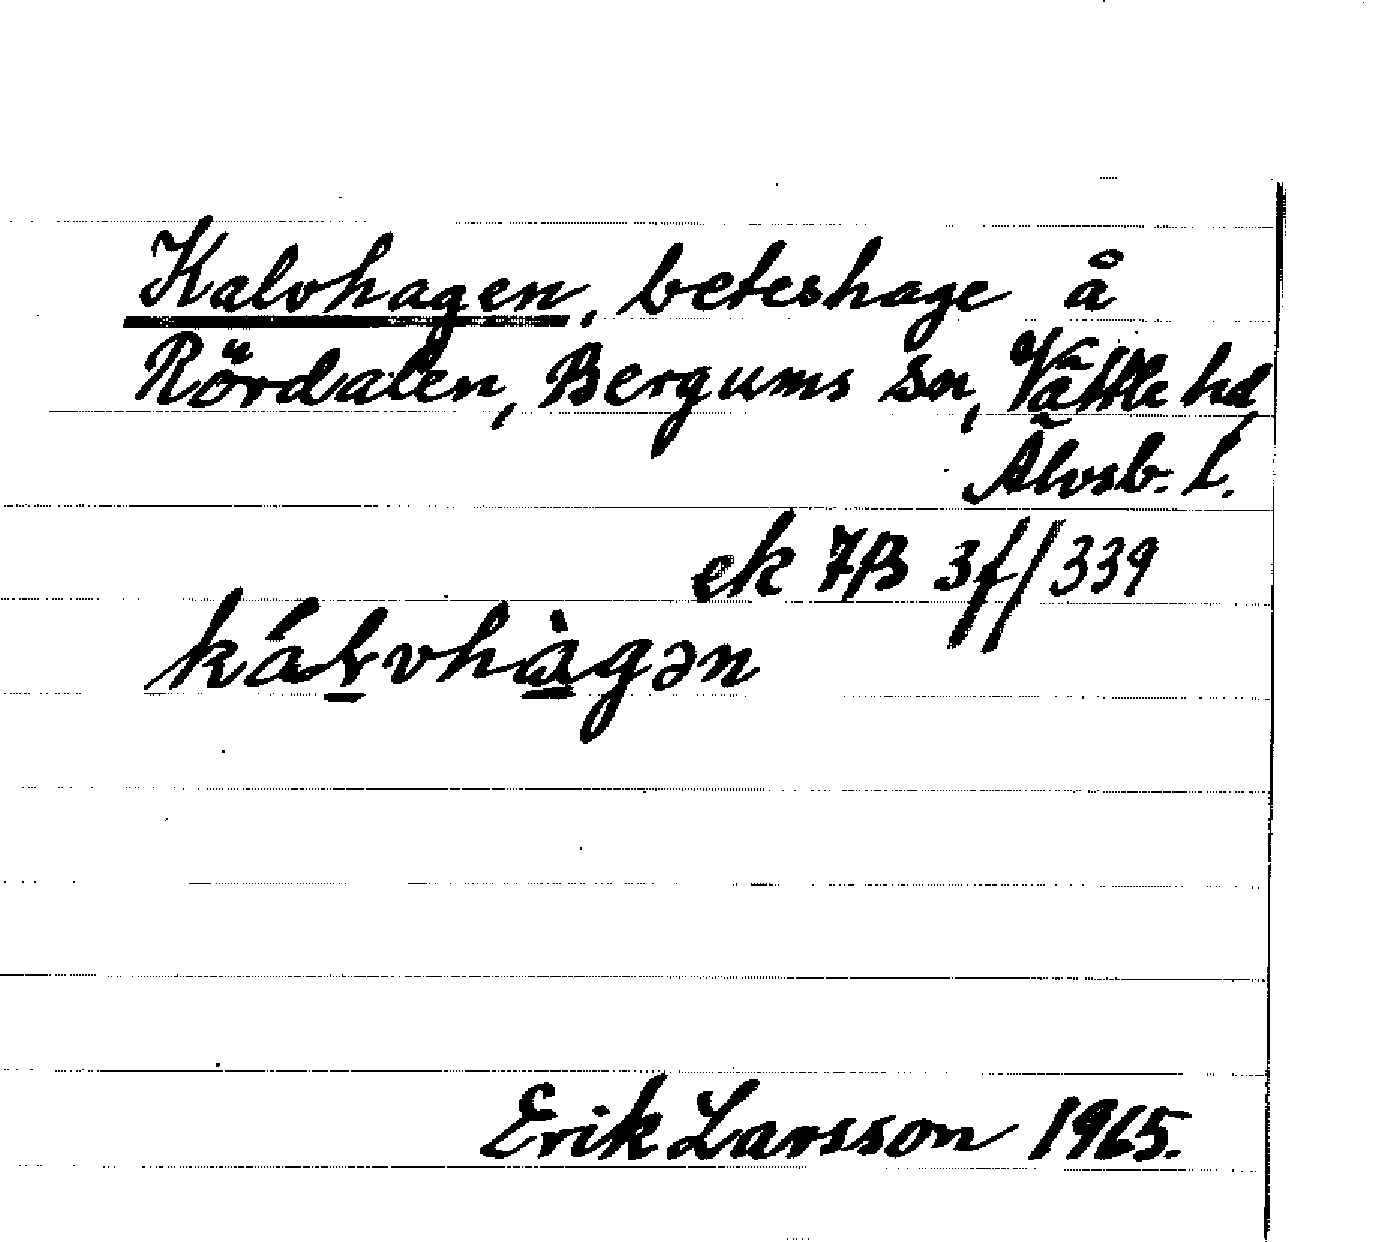 Kalvhagen, beteshage å
Rördalen, Bergums sn, Vättle hd,
Älvsb. l.
ek 7B 3f/339
kálvhàgən
Erik Larsson 1965.